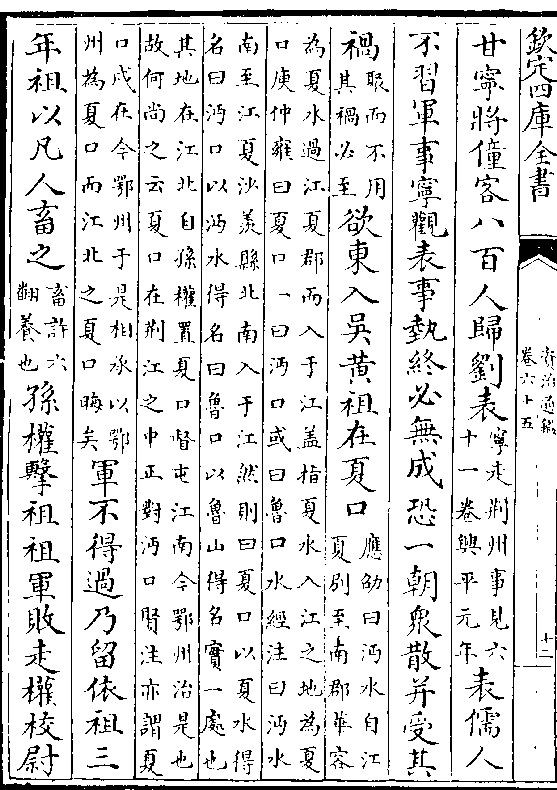 欽定四庫全書
資治通鑑
卷六十五
十二
甘寧將僮客八百人歸劉表
寧走荆州事見六
十一卷興平元年
表儒人
不習軍事寧觀表事勢終必無成恐一朝衆散并受其
禍
眂而不用
其禍必至
欲東入吳黄祖在夏口
應劭曰沔水自江
夏别至南郡華容
為夏水過江夏郡而入于江盖指夏水入江之地為夏
口庾仲雍曰夏口一曰沔口或曰魯口水經注曰沔水
南至江夏沙羨縣北南入于江然則曰夏口以夏水得
名曰沔口以沔水得名曰魯口以魯山得名實一處也
其地在江北自孫權置夏口督屯江南今鄂州治是也
故何尚之云夏口在荆江之中正對沔口賢注亦謂夏
口戍在今鄂州于是相承以鄂
州為夏口而江北之夏口晦矣
軍不得過乃留依祖三
年祖以凡人畜之
畜許六
翻養也
孫權擊祖祖軍敗走權校尉